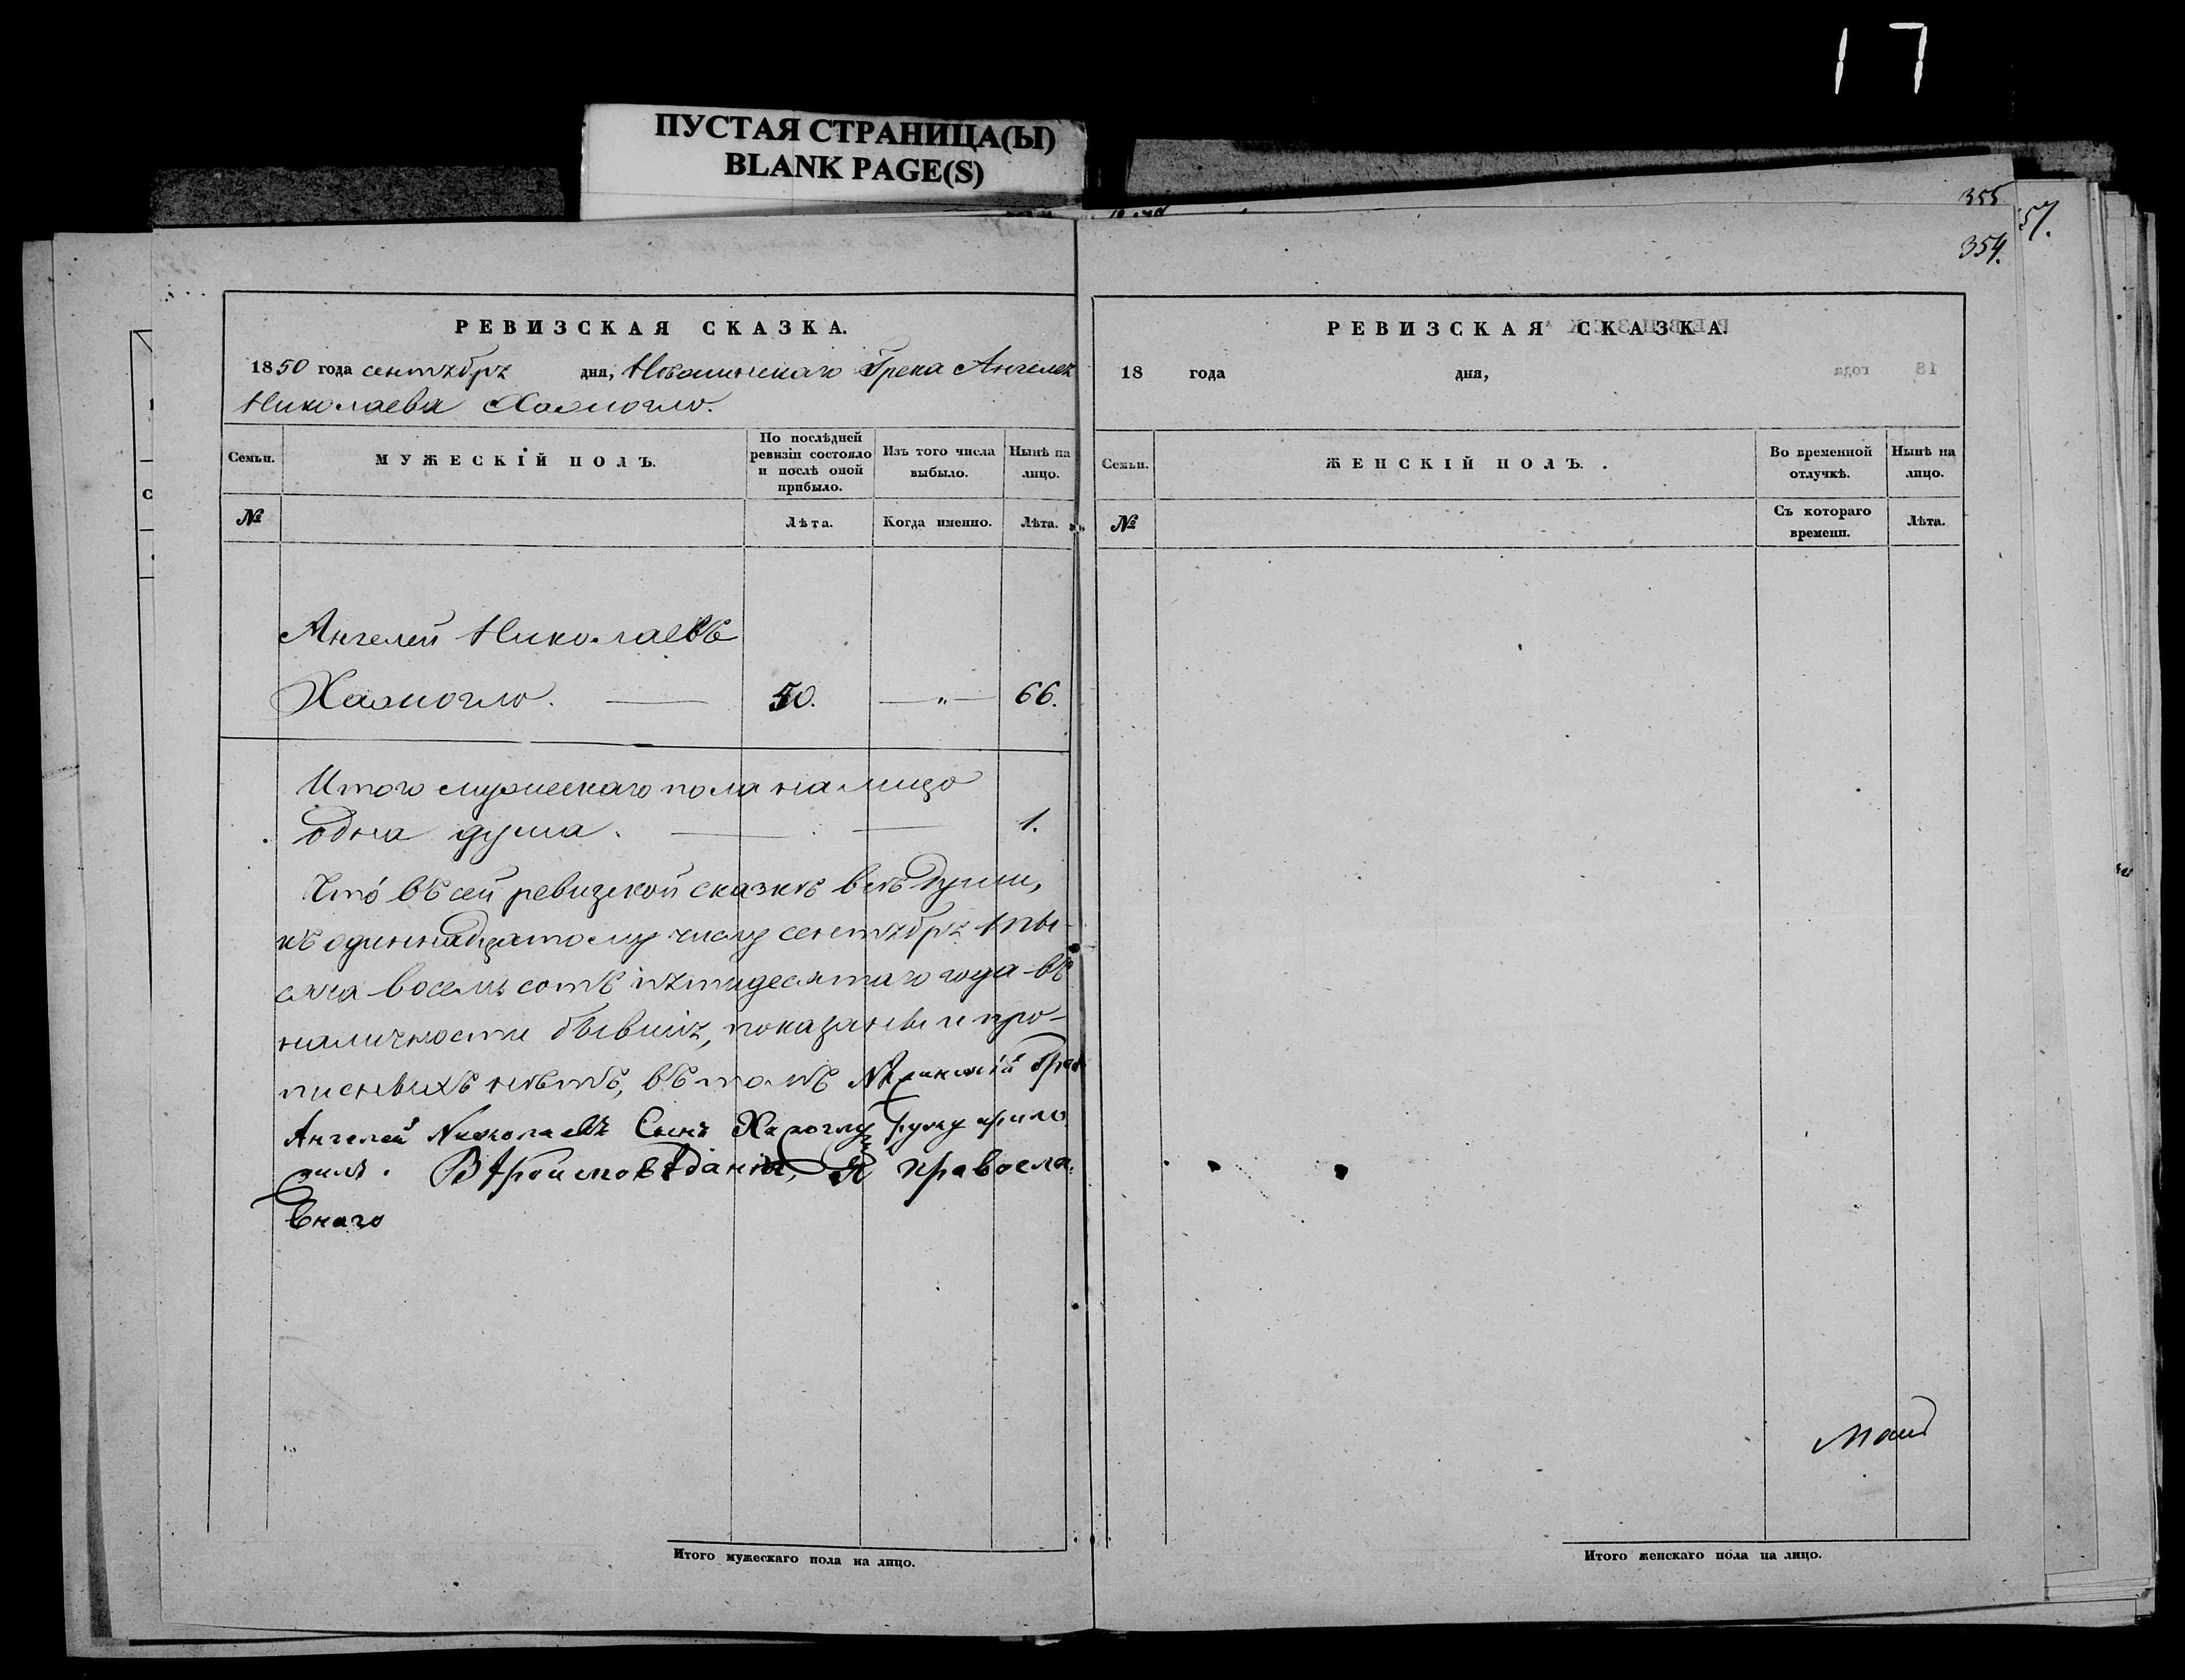 17
ПУСТАЯ СТРАНИЦА(Ы)
BLANK PAGE(S)
355
57.
354.
РЕВИЗСКАЯ СКАЗКА.
1850 года сентября дня, Грека Ангелея
Николаева
Семьи.
МУЖЕСКІЙ ПОЛЪ.
По послѣдней ревизіи состояло и послѣ оной прибыло.
Изъ того числа выбыло.
Нынѣ на лицо.
№
Лѣта.
Когда именно.
Лѣта.
Ангелей Николаевъ
Хазиогло. 50. — „ — 66.
Итого мужескаго пола на лицо
одна душа. 1.
Что въ сей ревизской сказкѣ всѣ души,
къ одиннадцатому числу сентября ты-
сяча восемь сотъ пятидесятаго года въ
наличности бывшія, показаны и про-
писныхъ нѣтъ, въ томъ
Ангелей Николаевъ Сынъ руку прило
жилъ. Вѣроисповѣданія, Я правосла.
внаго
РЕВИЗСКАЯ СКАЗКА.
18 года дня,
Семьи.
ЖЕНСКІЙ ПОЛЪ.
Во временной отлучкѣ.
Нынѣ на лицо.
№
Съ котораго времени.
Лѣта.
Итого мужескаго пола на лицо.
Итого женскаго пола на лицо.